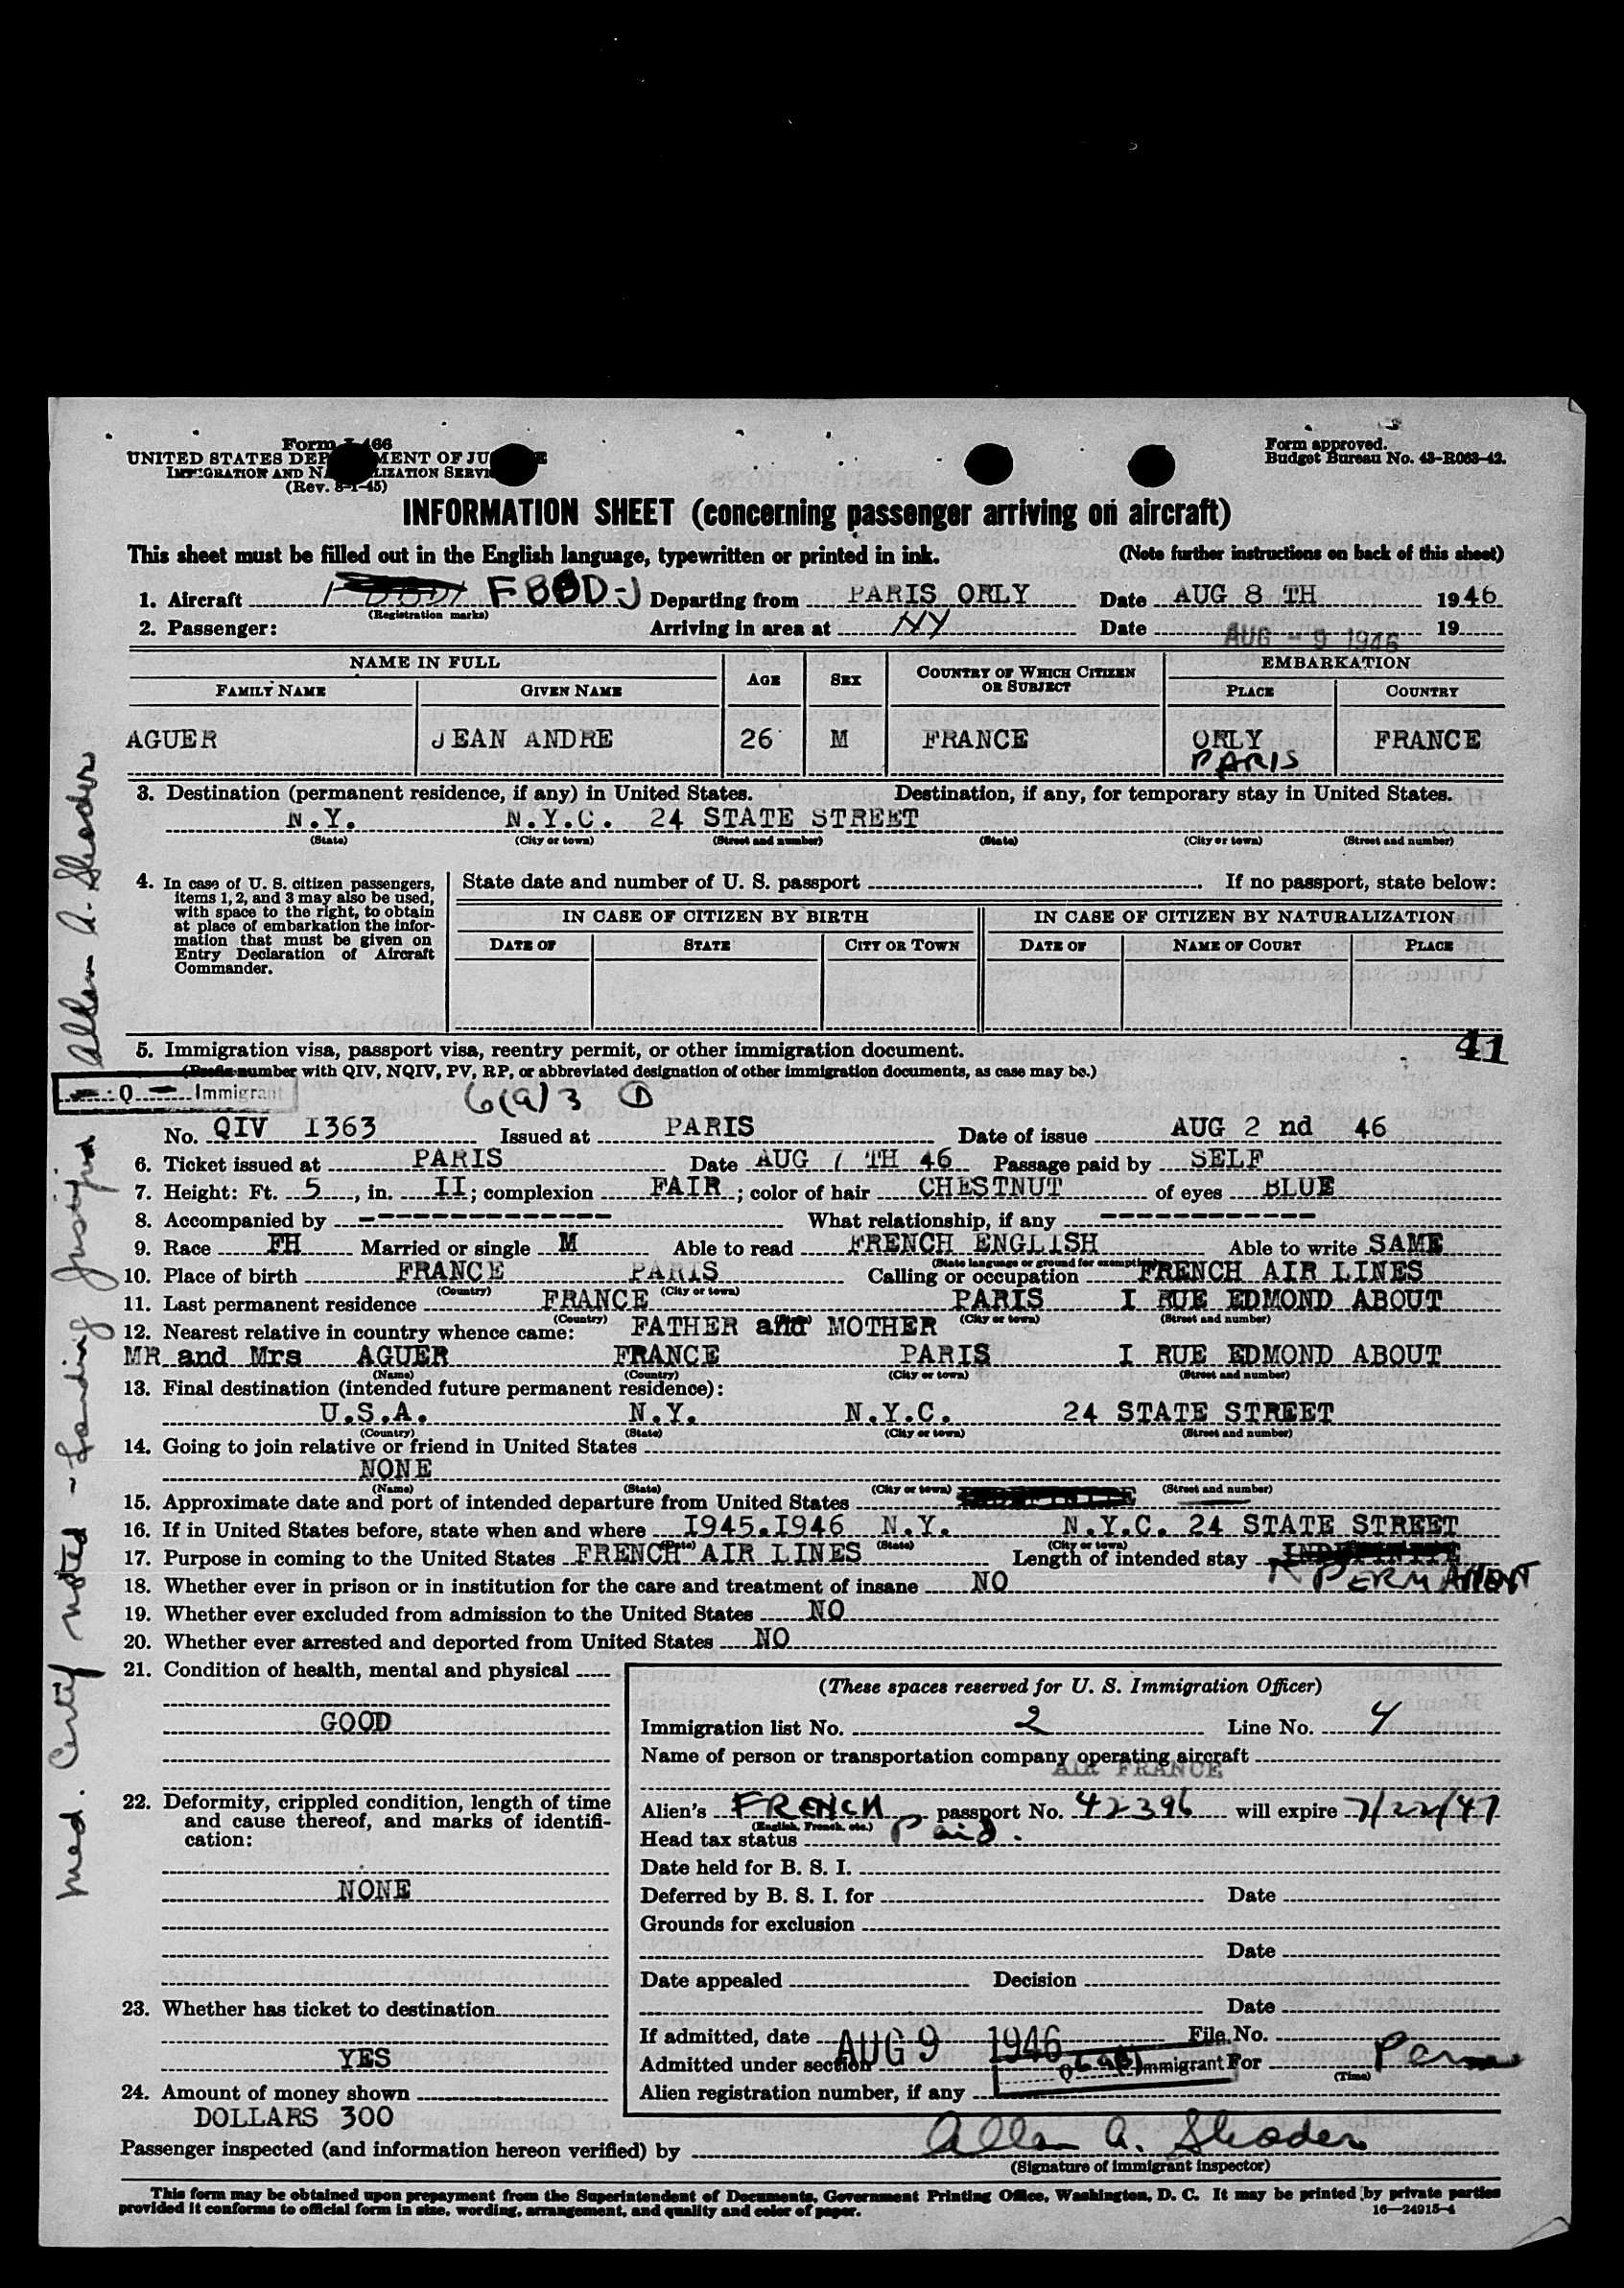 Form 466
UNITED STATES DEP MENT OF JU E
IMMIGRATION AND N LIZATION SERVI
(Rev. 8-1-45)
Form approved.
Budget Bureau No. 43-R063-42.
INFORMATION SHEET (concerning passenger arriving on aircraft)
This sheet must be filled out in the English language, typewritten or printed in ink. (Note further instructions on back of this sheet)
1. Aircraft FBBD-J Departing from PARIS ORLY Date AUG 8 TH 1946
(Registration marks)
2. Passenger: Arriving in area at NY Date AUG - 9 1946 19
NAME IN FULL AGE SEX COUNTRY OF WHICH CITIZEN OR SUBJECT EMBARKATION
FAMILY NAME GIVEN NAME PLACE COUNTRY
AGUER JEAN ANDRE 26 M FRANCE ORLY FRANCE
PARIS
3. Destination (permanent residence, if any) in United States. Destination, if any, for temporary stay in United States.
N.Y. N.Y.C. 24 STATE STREET
(State) (City or town) (Street and number) (State) (City or town) (Street and number)
4. In case of U. S. citizen passengers, items 1, 2, and 3 may also be used, with space to the right, to obtain at place of embarkation the information that must be given on Entry Declaration of Aircraft Commander.
State date and number of U. S. passport If no passport, state below:
IN CASE OF CITIZEN BY BIRTH IN CASE OF CITIZEN BY NATURALIZATION
DATE OF STATE CITY OR TOWN DATE OF NAME OF COURT PLACE
41
5. Immigration visa, passport visa, reentry permit, or other immigration document.
(Prefix number with QIV, NQIV, PV, RP, or abbreviated designation of other immigration documents, as case may be.)
Q Immigrant 6(a)3
No. QIV I363 Issued at PARIS Date of issue AUG 2 nd 46
6. Ticket issued at PARIS Date AUG 7 TH 46 Passage paid by SELF
7. Height: Ft. 5, in. II; complexion FAIR; color of hair CHESTNUT of eyes BLUE
8. Accompanied by ------------- What relationship, if any ------------
9. Race FH Married or single M Able to read FRENCH ENGLISH Able to write SAME
(State language or ground for exemption)
10. Place of birth FRANCE PARIS Calling or occupation FRENCH AIR LINES
(Country) (City or town)
11. Last permanent residence FRANCE PARIS I RUE EDMOND ABOUT
(Country) (City or town) (Street and number)
12. Nearest relative in country whence came: FATHER and MOTHER
MR and Mrs AGUER FRANCE PARIS I RUE EDMOND ABOUT
(Name) (Country) (City or town) (Street and number)
13. Final destination (intended future permanent residence):
U.S.A. N.Y. N.Y.C. 24 STATE STREET
(Country) (State) (City or town) (Street and number)
14. Going to join relative or friend in United States
NONE
(Name) (State) (City or town) (Street and number)
15. Approximate date and port of intended departure from United States
16. If in United States before, state when and where I945.I946 N.Y. N.Y.C. 24 STATE STREET
(Date) (State) (City or town)
17. Purpose in coming to the United States FRENCH AIR LINES Length of intended stay INDEFINITE
PERMANENT
18. Whether ever in prison or in institution for the care and treatment of insane NO
19. Whether ever excluded from admission to the United States NO
20. Whether ever arrested and deported from United States NO
21. Condition of health, mental and physical
GOOD
22. Deformity, crippled condition, length of time and cause thereof, and marks of identification:
NONE
23. Whether has ticket to destination
YES
24. Amount of money shown
DOLLARS 300
(These spaces reserved for U. S. Immigration Officer)
Immigration list No. 2 Line No. 4
Name of person or transportation company operating aircraft
AIR FRANCE
Alien's FRENCH passport No. 42396 will expire 7/22/47
(English, French, etc.)
Head tax status Paid.
Date held for B. S. I.
Deferred by B. S. I. for Date
Grounds for exclusion
Date
Date appealed Decision
Date
If admitted, date AUG 9 1946 File No.
Admitted under section Q 6(a)3 Immigrant For Perm
(Time)
Alien registration number, if any
Passenger inspected (and information hereon verified) by Allan A. Shader
(Signature of immigrant inspector)
This form may be obtained upon prepayment from the Superintendent of Documents, Government Printing Office, Washington, D. C. It may be printed by private parties
provided it conforms to official form in size, wording, arrangement, and quality and color of paper. 16—24915-4
Med. Certif noted - Landing Justified Allan A. Shader